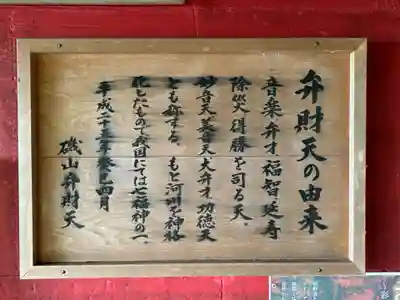 弁財天の由来
音楽弁才福智延寿
除災得勝を司る天。
妙音天、美音天、大弁才、功徳天
とも称する。もと河川を神格
化したもので我国にては七福神の一。
平成二十五年癸巳四月
磯山弁財天